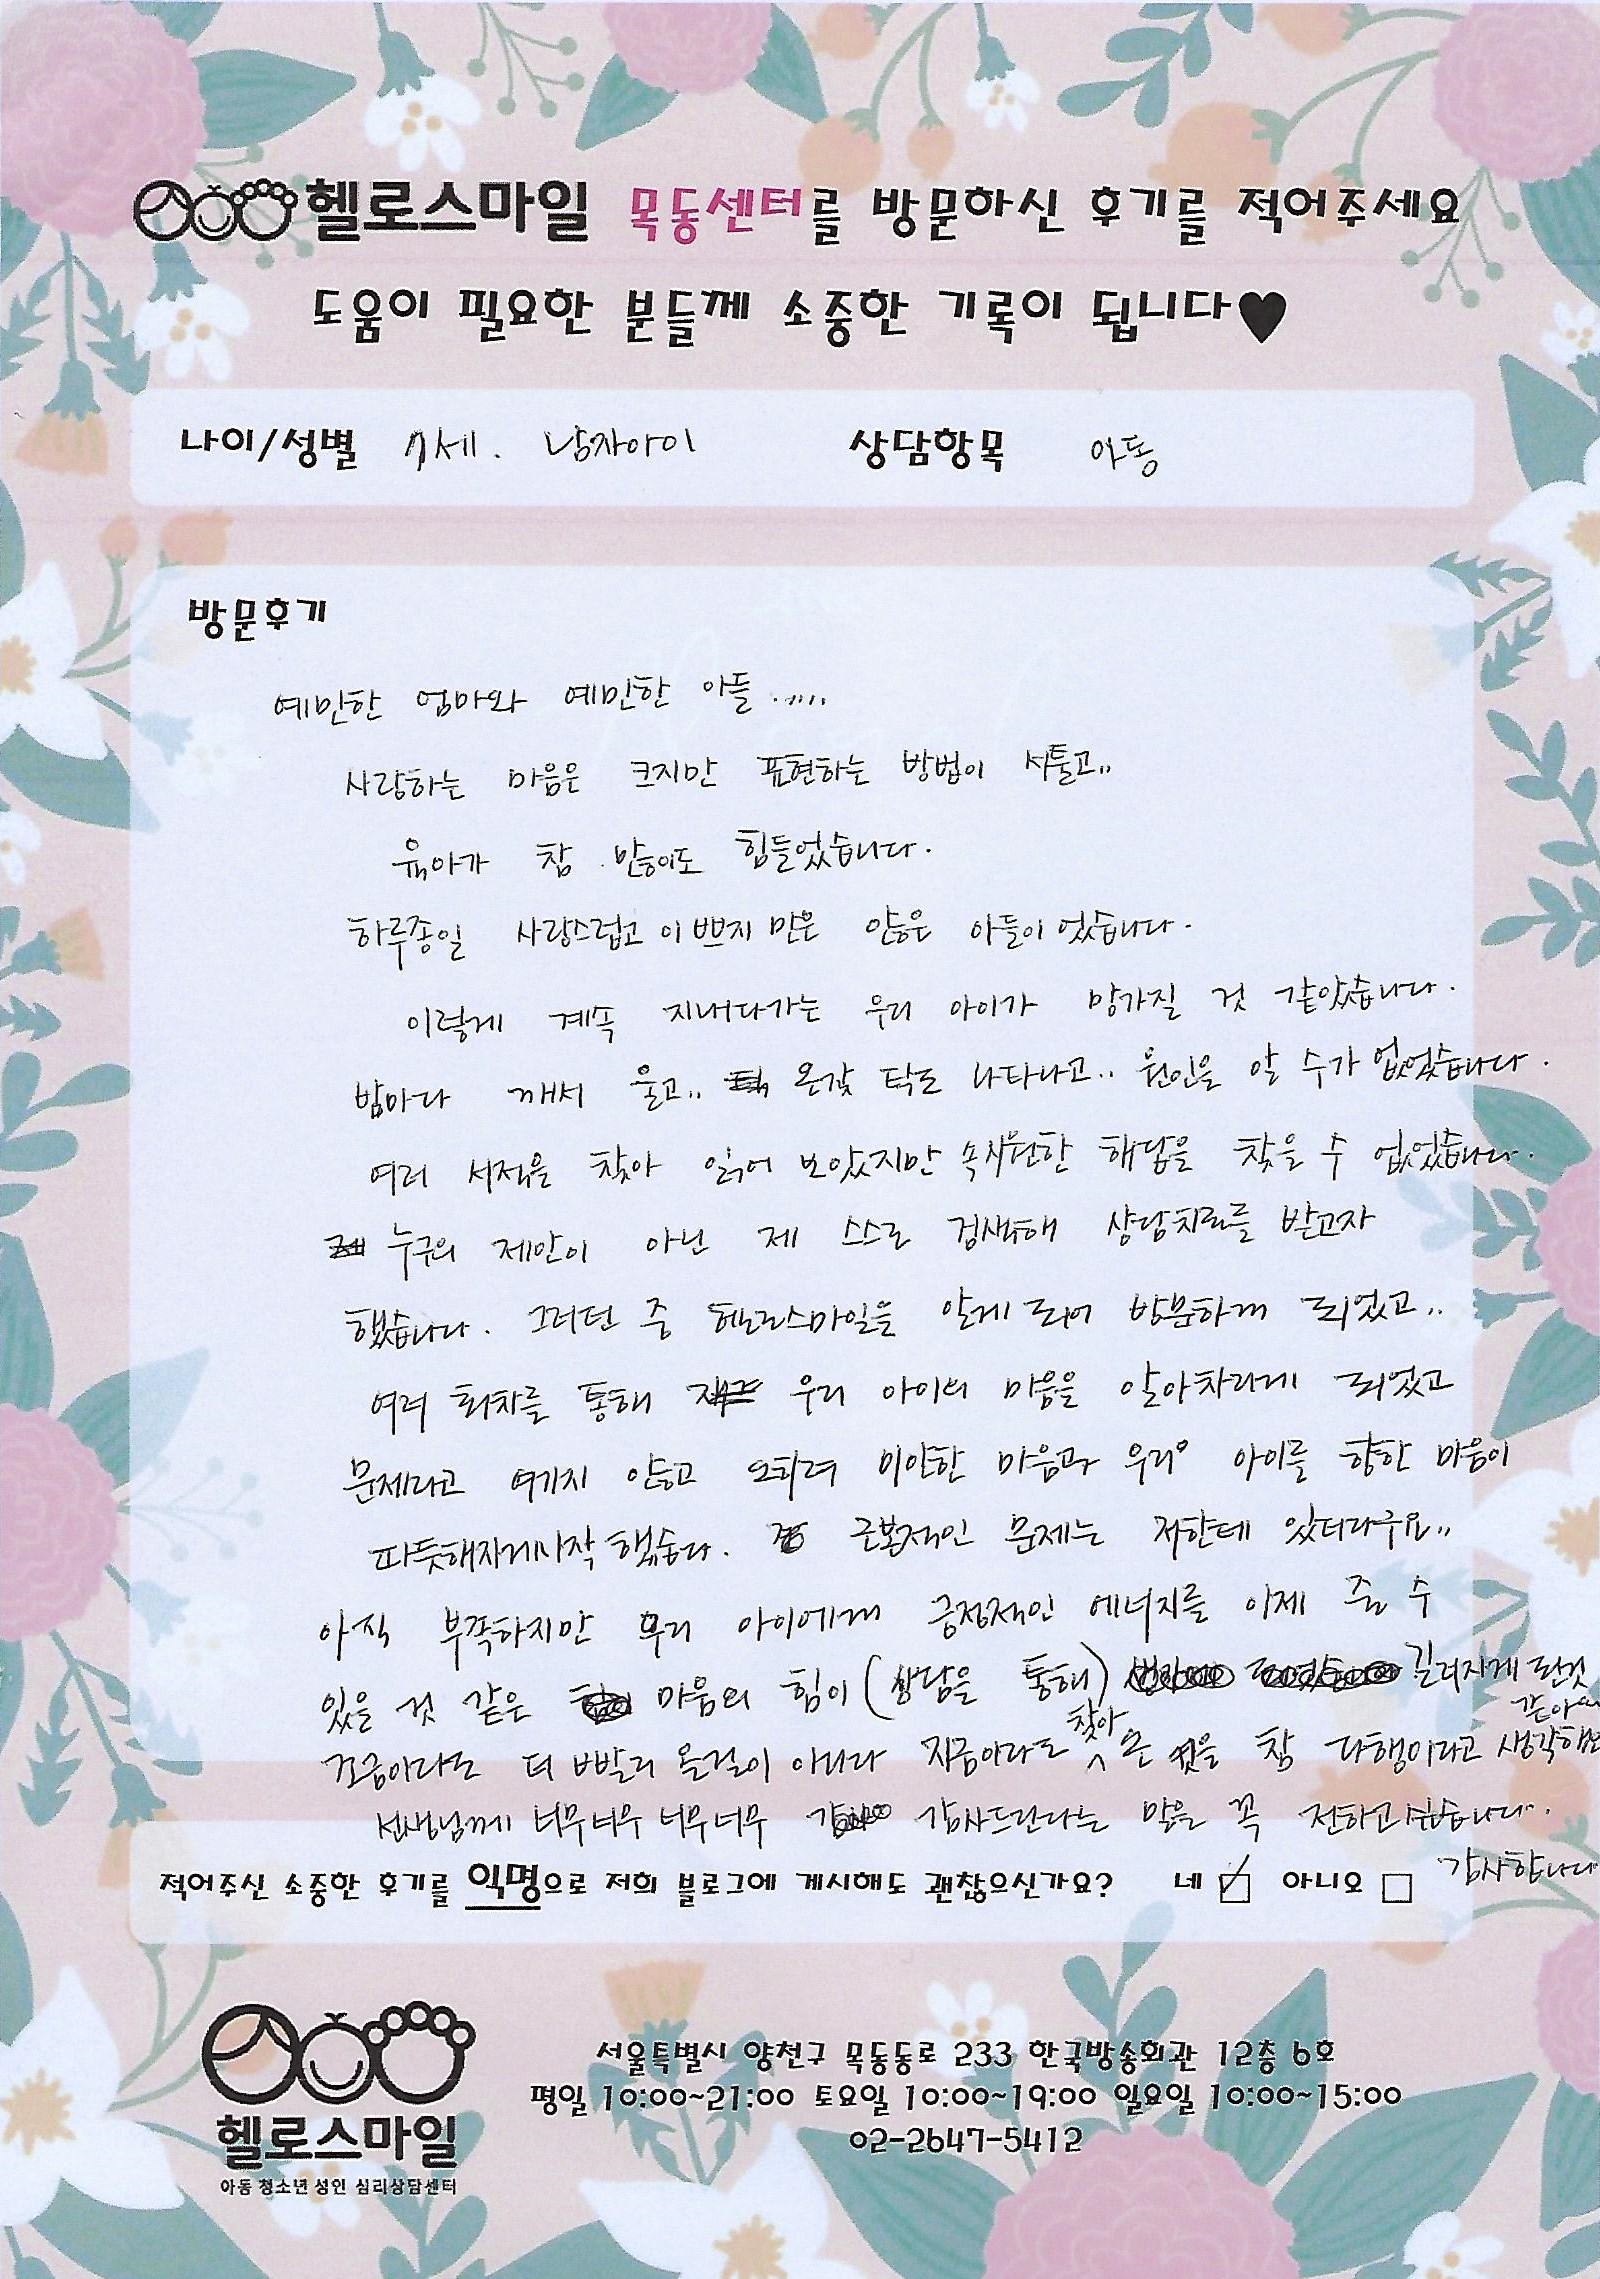 헬로스마일 목동센터를 방문하신 후기를 적어주세요
도움이 필요한 분들께 소중한 기록이 됩니다♥
나이/성별 7세. 남자아이 상담항목 아동
방문후기
예민한 엄마와 예민한 아들.....
사랑하는 마음은 크지만 표현하는 방법이 서툴고..
육아가 참 많이도 힘들었습니다.
하루종일 사랑스럽고 이쁘지 만은 않은 아들이었습니다.
이렇게 계속 지내다가는 우리 아이가 망가질 것 같았습니다.
밤마다 깨서 울고.. 온갖 틱도 나타나고.. 원인을 알 수가 없었습니다.
여러 서적을 찾아 읽어 보았지만 속시원한 해답을 찾을 수 없었습니다.
누구의 제안이 아닌 제 스스로 검색해 상담치료를 받고자
했습니다. 그러던 중 헬로스마일을 알게 되어 방문하게 되었고..
여러 회차를 통해 우리 아이의 마음을 알아차리게 되었고
문제라고 여기지 않고 오히려 미안한 마음과 우리 아이를 향한 마음이
따듯해지게시작 했습니다. 근본적인 문제는 저한테 있더라구요..
아직 부족하지만 우리 아이에게 긍정적인 에너지를 이제 줄 수
있을 것 같은 마음의 힘이 (상담을 통해) 길러지게 된것
같아요
조금이라도 더 빨리 올걸이 아니라 지금이라도 찾아 온 것을 참 다행이라고 생각해요
선생님께 너무너무 너무너무 감사드린다는 말을 꼭 전하고싶습니다.
감사합니다
적어주신 소중한 후기를 익명으로 저희 블로그에 게시해도 괜찮으신가요? 네 ☑ 아니오 □
헬로스마일
아동 청소년 성인 심리상담센터
서울특별시 양천구 목동동로 233 한국방송회관 12층 6호
평일 10:00~21:00 토요일 10:00~19:00 일요일 10:00~15:00
02-2647-5412